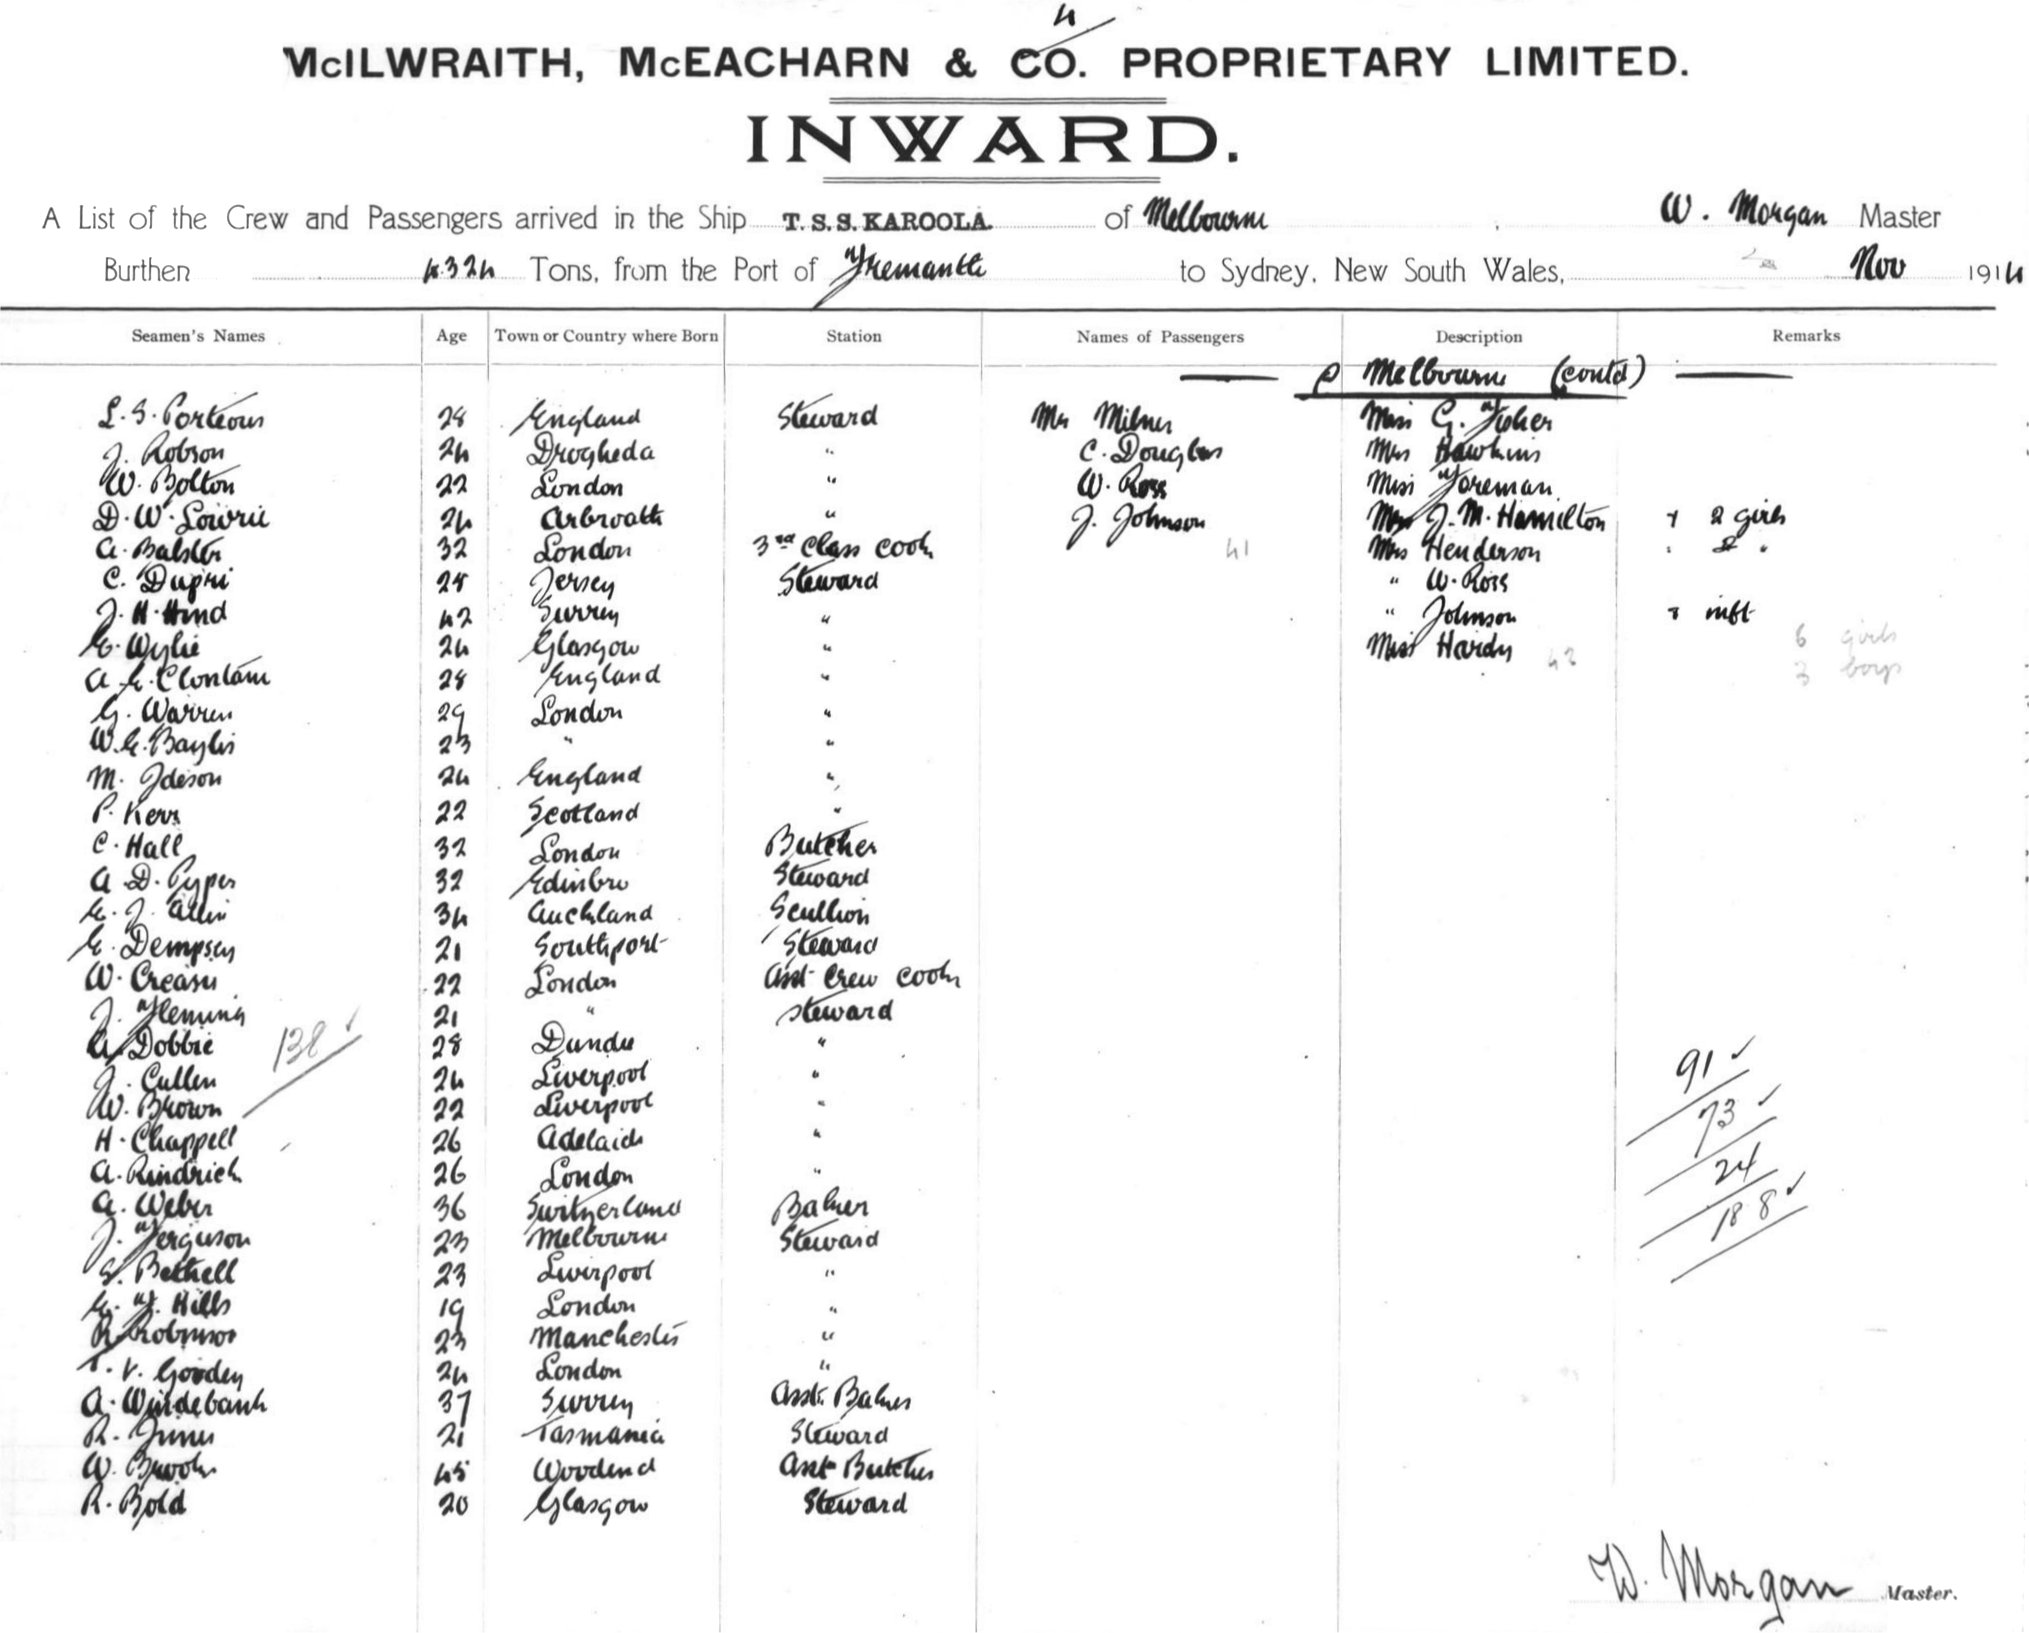 4
McILWRAITH, McEACHARN & CO. PROPRIETARY LIMITED.
INWARD.
A List of the Crew and Passengers arrived in the Ship T. S. S. KAROOLA. of Melbourne, W. Morgan Master
Burthen 4324 Tons, from the Port of Fremantle to Sydney, New South Wales, Nov 1914
Seamen's Names Age Town or Country where Born Station Names of Passengers Description Remarks
Melbourne (contd)
L. S. Porteous 28 England Steward Mr Milner Miss G. Fisher
J. Robson 24 Drogheda " C. Douglas Mrs Hawkins
W. Bolton 22 London " W. Ross Miss Foreman
D. W. Lowrie 24 Arbroath " J. Johnson Mrs J. M. Hamilton + 2 girls
A. Balster 32 London 3rd Class Cook 41 Mrs Henderson " 2 "
C. Dupri 28 Jersey Steward " W. Ross
J. H. Hind 42 Surrey " " Johnson + inft
E. Wylie 24 Glasgow " Miss Hardy 42 6 girls
A. E. Clontam 28 England " 3 boys
G. Warren 29 London "
W. E. Baylis 23 " "
M. Ideson 24 England "
P. Kerr 22 Scotland "
C. Hall 32 London Butcher
A. D. Pyper 32 Edinbro Steward
E. J. Allin 34 Auckland Scullion
E. Dempsey 21 Southport Steward
W. Creasy 22 London Asst Crew Cook
J. Fleming 21 " Steward
A. Dobbie 138 28 Dundee " 91
J. Cullen 24 Liverpool "
W. Brown 22 Liverpool " 73
H. Chappell 26 Adelaide "
A. Rindrich 26 London " 24
A. Weber 36 Switzerland Baker 188
J. Ferguson 23 Melbourne Steward
S. Bethell 23 Liverpool "
E. F. Hills 19 London "
R. Robinson 23 Manchester "
T. V. Gooden 24 London "
A. Windebank 37 Surrey Asst. Baker
R. Junes 21 Tasmania Steward
W. Brook 45 Woodend Asst Butcher
R. Bold 20 Glasgow Steward
W. Morgan Master.